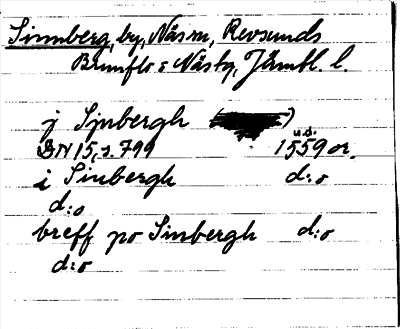 Sinnberg, by, Näsm, Revsunds
Brunflo s Näsby, Jämtl. l.
j Sjnbergh
u.d.
DN 15, s. 799 1559 or.
i Sinbergh d:o
d:o
breff po Sinbergh d:o
d:o